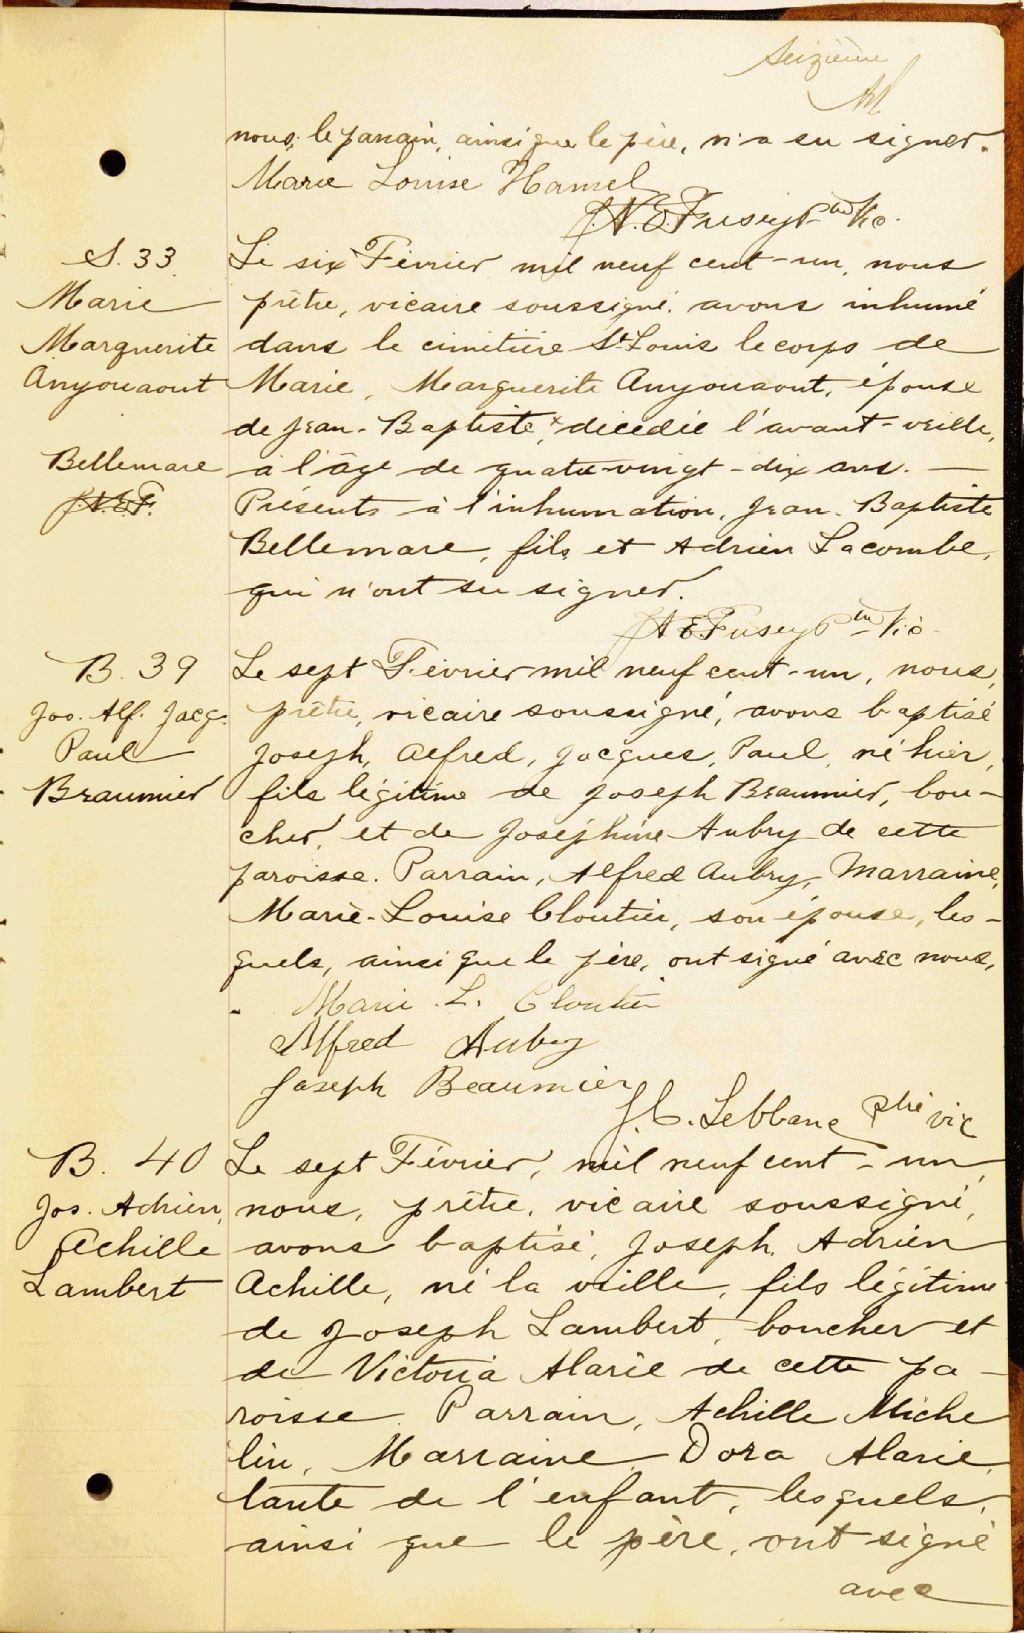 Seizième
nous, le parrain, ainsi que le père, n'a su signer.
Marie Louise Hamel
J.N.E. Fusey Ptre Vic.
S. 33
Marie
Marguerite
Anyouaout
Bellemare
J.N.E.F.
Le six Février mil neuf cent-un, nous
prêtre, vicaire soussigné, avons inhumé
dans le cimetière St Louis le corps de
Marie, Marguerite Anyouaout, épouse
de Jean-Baptiste, × décédée l'avant-veille,
à l'âge de quatre-vingt-dix ans. —
Présents à l'inhumation, Jean-Baptiste
Bellemare, fils, et Adrien Lacombe,
qui n'ont su signer.
J.N.E. Fusey Ptre Vic.
B. 39
Jos. Alf. Jacq.
Paul
Beaumier
Le sept Février mil neuf cent-un, nous,
prêtre, vicaire soussigné, avons baptisé
Joseph, Alfred, Jacques, Paul, né hier,
fils légitime de Joseph Beaumier, bou-
cher, et de Joséphine Aubry de cette
paroisse. Parrain, Alfred Aubry, Marraine,
Marie-Louise Cloutier, son épouse, les-
quels, ainsi que le père, ont signé avec nous,
Marie L. Cloutier
Alfred Aubry
Joseph Beaumier
J. C. Leblanc ptre vic
B. 40
Jos. Adrien,
Achille
Lambert
Le sept Février, mil neuf cent-un,
nous, prêtre, vicaire soussigné,
avons baptisé, Joseph, Adrien
Achille, né la veille, fils légitime
de Joseph Lambert, boucher et
de Victoria Alarie de cette pa-
roisse. Parrain, Achille Miche
lin, Marraine Dora Alarie,
tante de l'enfant, lesquels,
ainsi que le père, ont signé
avec